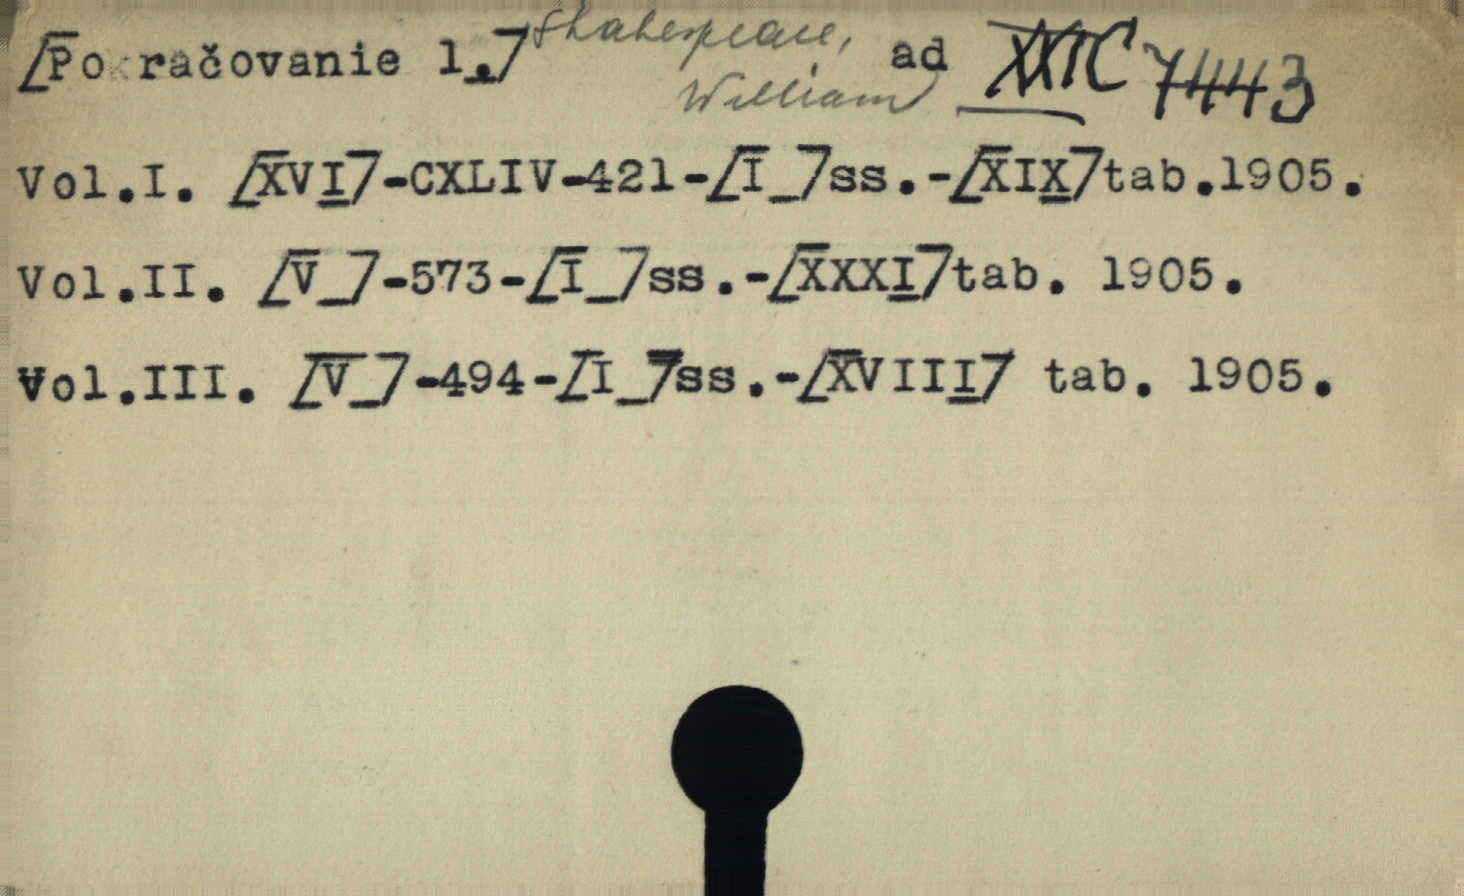 [Pokračovanie 1.] Shakespeare, ad XXIC 7443
William
Vol.I. [XVI]-CXLIV-421-[I_]ss.-[XIX]tab.1905.
Vol.II. [V_]-573-[I_]ss.-[XXXI]tab. 1905.
Vol.III. [V_]-494-[I_]ss.-[XVIII] tab. 1905.